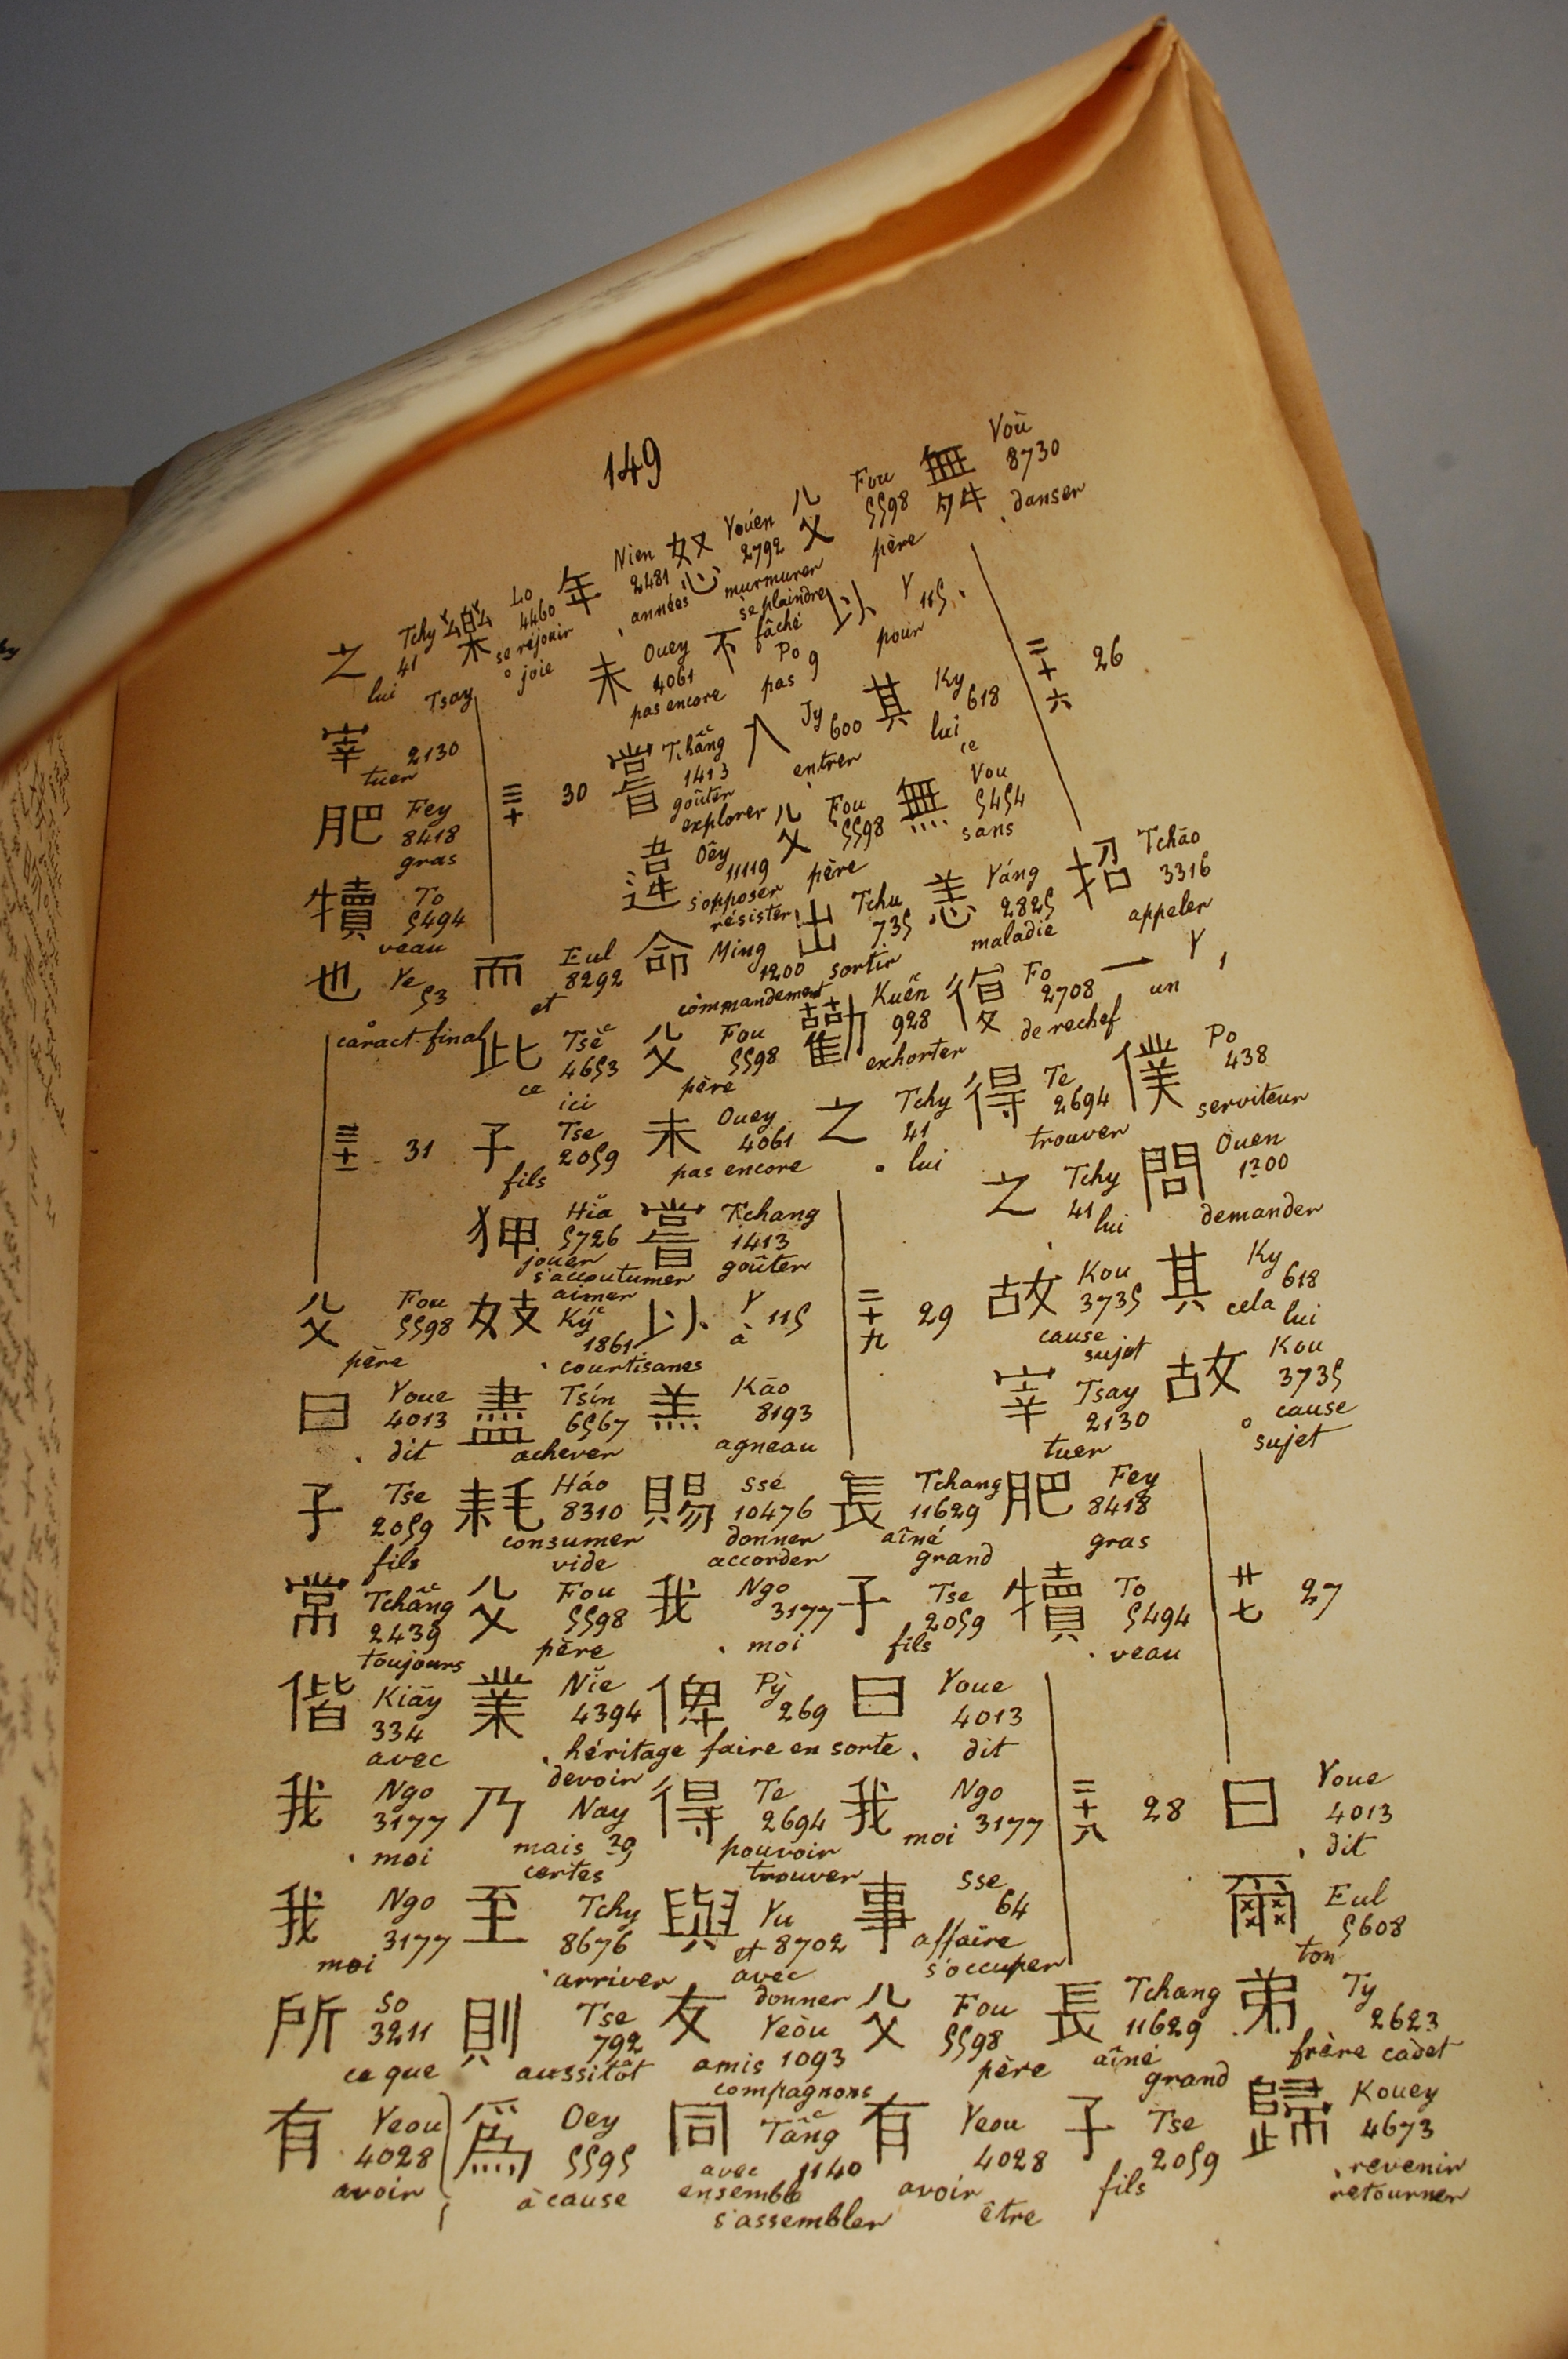 149
舞 Voù 8730 danser
二十六 26
招 Tchāo 3316 appeler
一 Y 1 un
僕 Po 438 serviteur
問 Ouen 1200 demander
其 Ky 618 cela lui
故 Kou 3735 cause sujet
廿七 27
曰 Youe 4013 dit
爾 Eul 5608 ton
弟 Ty 2623 frère cadet
歸 Kouey 4673 revenir retourner
父 Fou 5598 père
以 Y 115 pour
其 Ky 618 lui ce
無 Vou 5454 sans
恙 Yáng 2825 maladie
復 Fo 2708 derechef
得 Te 2694 trouver
之 Tchy 41 lui
故 Kou 3735 cause sujet
宰 Tsay 2130 tuer
肥 Fey 8418 gras
犢 To 5494 veau
二十八 28
長 Tchang 11629 aîné grand
子 Tse 2059 fils
怨 Youén 2792 murmurer se plaindre fâché
不 Po 9 pas
入 Jy 600 entrer
父 Fou 5598 père
出 Tchu 735 sortir
勸 Kuén 928 exhorter
之 Tchy 41 lui
二十九 29
長 Tchang 11629 aîné grand
子 Tse 2059 fils
曰 Youe 4013 dit
我 Ngo 3177 moi
事 Sse 64 affaire s'occuper
父 Fou 5598 père
有 Yeou 4028 avoir être
年 Nien 2481 années
未 Ouey 4061 pas encore
嘗 Tchâng 1413 goûter explorer
違 Oêy 11119 s'opposer résister
命 Ming 1200 commandement
父 Fou 5598 père
未 Ouey 4061 pas encore
嘗 Tchang 1413 goûter
以 Y 115 à
羔 Kāo 8193 agneau
賜 Ssé 10476 donner accorder
我 Ngo 3177 moi
俾 Pỳ 269 faire en sorte
得 Te 2694 pouvoir trouver
與 Yu 8702 et avec donner
友 Yeòu 1093 amis compagnons
同 Tâng 1140 avec ensemble s'assembler
樂 Lo 4460 se réjouir joie
三十 30
而 Eul 8292 et
此 Tsě 4653 ce ici
子 Tse 2059 fils
狎 Hiǎ 5726 jouer s'accoutumer aimer
妓 Ký 1861 courtisanes
盡 Tsín 6567 achever
耗 Háo 8310 consumer vide
父 Fou 5598 père
業 Niě 4394 héritage devoir
乃 Nay 29 mais certes
至 Tchy 8676 arriver
則 Tse 792 aussitôt
爲 Oey 5595 à cause
之 Tchy 41 lui
宰 Tsay 2130 tuer
肥 Fey 8418 gras
犢 To 5494 veau
也 Ye 53 caract. final
三十一 31
父 Fou 5598 père
曰 Youe 4013 dit
子 Tse 2059 fils
常 Tchâng 2439 toujours
偕 Kiāy 334 avec
我 Ngo 3177 moi
我 Ngo 3177 moi
所 So 3211 ce que
有 Yeou 4028 avoir